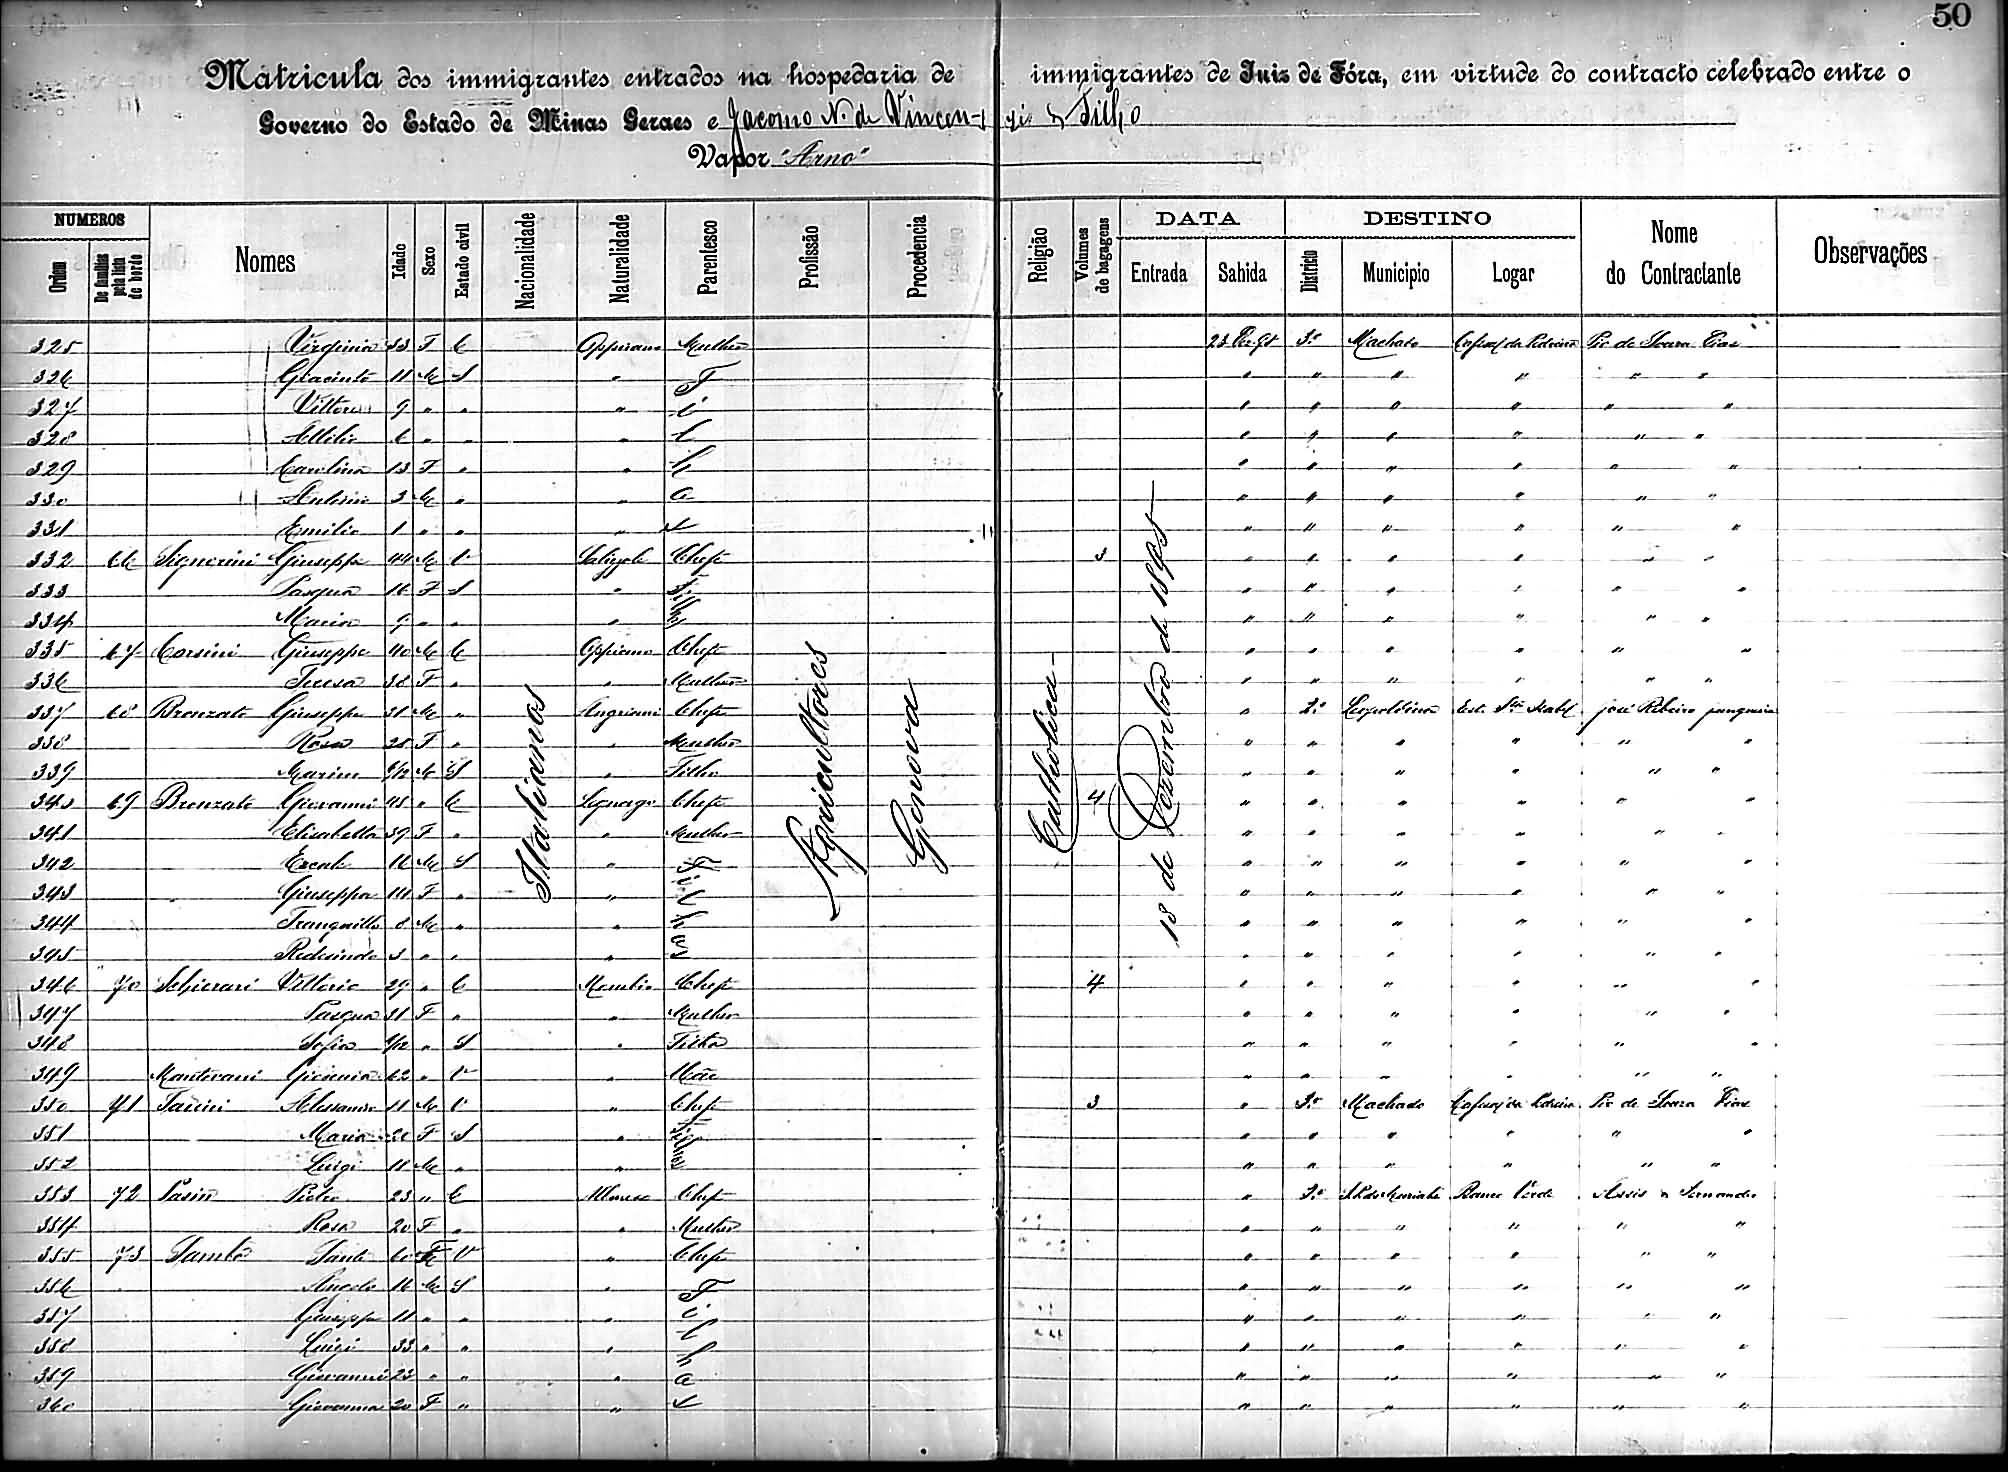 50
Matricula dos immigrantes entrados na hospedaria de immigrantes de Juiz de Fóra, em virtude do contracto celebrado entre o
Governo do Estado de Minas Geraes e Jacomo N. de Vincenzi & Filho
Vapor "Arno"
NUMEROS DATA DESTINO
Ordem De familias pela lista de bordo Nomes Idade Sexo Estado civil Nacionalidade Naturalidade Parentesco Profissão Procedencia Religião Volumes de bagagens Entrada Sahida Districto Municipio Logar Nome do Contractante Observações
Italianos Agricultores Genova Catholica 18 de Dezembro de 1895
325 Virginia 33 F C Oppeano Mulher 23 3º Machado Pio de Souza Dias
326 Giacinto 11 M S " F " " " " " "
327 Vittorio 9 " " " i " " " " " "
328 Attilio 6 " " " l " " " " " "
329 Carolina 13 F " " h " " " " " "
330 Antonio 3 M " " o " " " " " "
331 Emilio 1 " " " s " " " " " "
332 66 Signorini Giuseppe 44 M V Chefe 3 " " " " " "
333 Pasqua 16 F S " " " " " " "
334 Maria 9 " " " " " " " " "
335 67 Corsini Giuseppe 40 M C Oppeano Chefe " " " " " "
336 Teresa 38 F " " Mulher " " " " " "
337 68 Bronzato Giuseppe 31 M " Angiari Chefe " 2º Leopoldina Est. Sta Isabel José Ribeiro Junqueira
338 Rosa 28 F " " Mulher " " " " " "
339 S " Filho " " " " " "
340 69 Bronzato Giovanni 45 " C Legnago Chefe 4 " " " " " "
341 Elisabetta 39 F " " Mulher " " " " " "
342 Ercole 16 M S " F " " " " " "
343 Giuseppa 14 F " " i l " " " " " "
344 Tranquillo 8 M " " h " " " " " "
345 3 " " " o s " " " " " "
346 70 Schierari Vittorio 29 " C Chefe 4 " " " " " "
347 Pasqua 31 F " " Mulher " " " " " "
348 Sofia " S " Filha " " " " " "
349 Mantovani 62 " V " Mãe " " " " " "
350 71 Alessandro M V " Chefe 3 " 3º Machado Pio de Souza Dias
351 Maria 20 F S " " " " " " "
352 Luigi 11 M " " " " " " " "
353 72 Pasin Pietro 23 " C Chefe " 3º Banco Verde Assis & Fernandes
354 Rosa 20 F " " Mulher " " " " " "
355 73 Sante 60 V " Chefe " " " " " "
356 Angelo 16 M S " F " " " " " "
357 Giuseppe 11 " " " i " " " " " "
358 Luigi 33 " " " l " " " " " "
359 Giovanni 23 " " " h o " " " " " "
360 Giovanna 20 F " " s " " " " " "